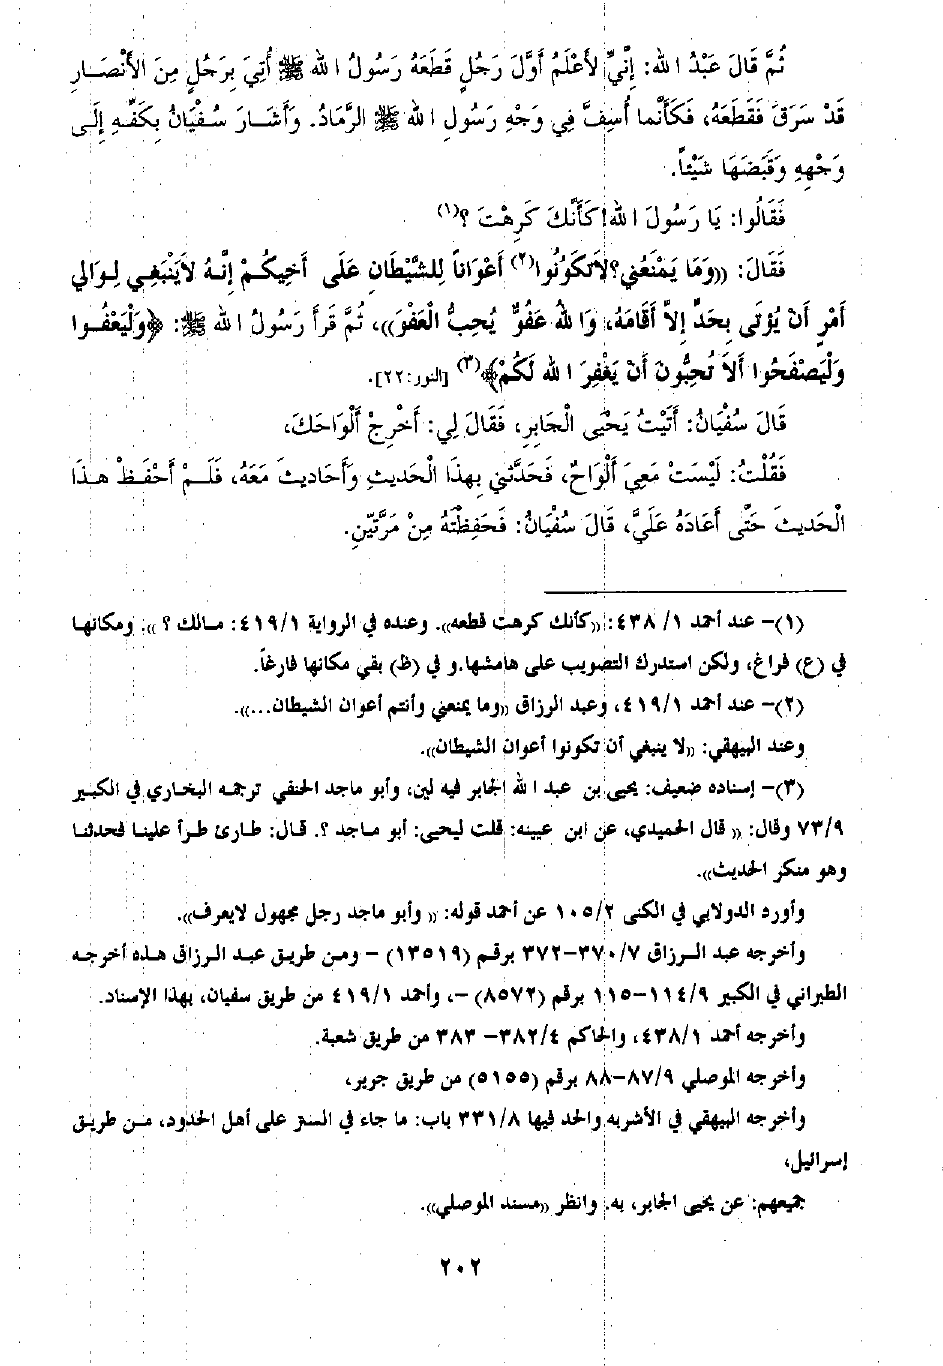 ثُمَّ قَالَ عَبْدُ الله: إِنِّي لأَعْلَمُ أَوَّلَ رَجُلٍ قَطَعَهُ رَسُولُ الله ﷺ أُتِيَ بِرَجُلٍ مِنَ الأَنْصَارِ
قَدْ سَرَقَ فَقَطَعَهُ، فَكَأَنَّما أُسِفَّ فِي وَجْهِ رَسُولِ الله ﷺ الرَّمَادُ. وَأَشَارَ سُفْيَانُ بِكَفِّهِ إِلَى
وَجْهِهِ وَقَبَضَهَا شَيْئاً.
فَقَالُوا: يَا رَسُولَ الله! كَأَنَّكَ كَرِهْتَ ؟(١)
فَقَالَ: ((وَمَا يَمْنَعُنِي؟ لاَتَكُونُوا(٢) أَعْوَاناً لِلشَّيْطَانِ عَلَى أَخِيكُمْ إِنَّهُ لاَيَنْبَغِي لِوَالِي
أَمْرٍ أَنْ يُؤْتَى بِحَدٍّ إِلاَّ أَقَامَهُ، وَالله عَفُوٌّ يُحِبُّ الْعَفْوَ))، ثُمَّ قَرَأَ رَسُولُ الله ﷺ: ﴿وَلْيَعْفُوا
وَلْيَصْفَحُوا أَلاَ تُحِبُّونَ أَنْ يَغْفِرَ الله لَكُمْ﴾(٣) [النور:٢٢].
قَالَ سُفْيَانُ: أَتَيْتُ يَحْيَى الْجَابِرِ، فَقَالَ لِي: أَخْرِجْ أَلْوَاحَكَ،
فَقُلْتُ: لَيْسَتْ مَعِيَ أَلْوَاحٌ، فَحَدَّثَنِي بِهذَا الْحَدِيثِ وَأَحَادِيثَ مَعَهُ، فَلَمْ أَحْفَظْ هذَا
الْحَدِيثَ حَتَّى أَعَادَهُ عَلَيَّ، قَالَ سُفْيَانُ: فَحَفِظْتُهُ مِنْ مَرَّتَيْنِ.
(١)- عند أحمد ١/ ٤٣٨: ((كأنك كرهت قطعه)). وعنده في الرواية ٤١٩/١: مالك ؟ )). ومكانها
في (ع) فراغ، ولكن استدرك التصويب على هامشها.و في (ظ) بقي مكانها فارغاً.
(٢)- عند أحمد ٤١٩/١، وعبد الرزاق ((وما يمنعني وأنتم أعوان الشيطان...)).
وعند البيهقي: ((لا ينبغي أن تكونوا أعوان الشيطان)).
(٣)- إسناده ضعيف: يحيى بن عبد الله الجابر فيه لين، وأبو ماجد الحنفي ترجمه البخاري في الكبير
٧٣/٩ وقال: (( قال الحميدي، عن ابن عيينه: قلت ليحيى: أبو ماجد ؟. قال: طارئ طرأ علينا فحدثنا
وهو منكر الحديث)).
وأورد الدولابي في الكنى ١٠٥/٢ عن أحمد قوله: (( وأبو ماجد رجل مجهول لايعرف)).
وأخرجه عبد الرزاق ٣٧٠/٧-٣٧٢ برقم (١٣٥١٩) - ومن طريق عبد الرزاق هذه أخرجه
الطبراني في الكبير ١١٤/٩-١١٥ برقم (٨٥٧٢) -، وأحمد ٤١٩/١ من طريق سفيان، بهذا الإسناد.
وأخرجه أحمد ٤٣٨/١، والحاكم ٣٨٢/٤- ٣٨٣ من طريق شعبة.
وأخرجه الموصلي ٨٧/٩-٨٨ برقم (٥١٥٥) من طريق جرير،
وأخرجه البيهقي في الأشربه والحد فيها ٣٣١/٨ باب: ما جاء في الستر على أهل الحدود، من طريق
إسرائيل،
جميعهم: عن يحيى الجابر، به. وانظر ((مسند الموصلي)).
٢٠٢